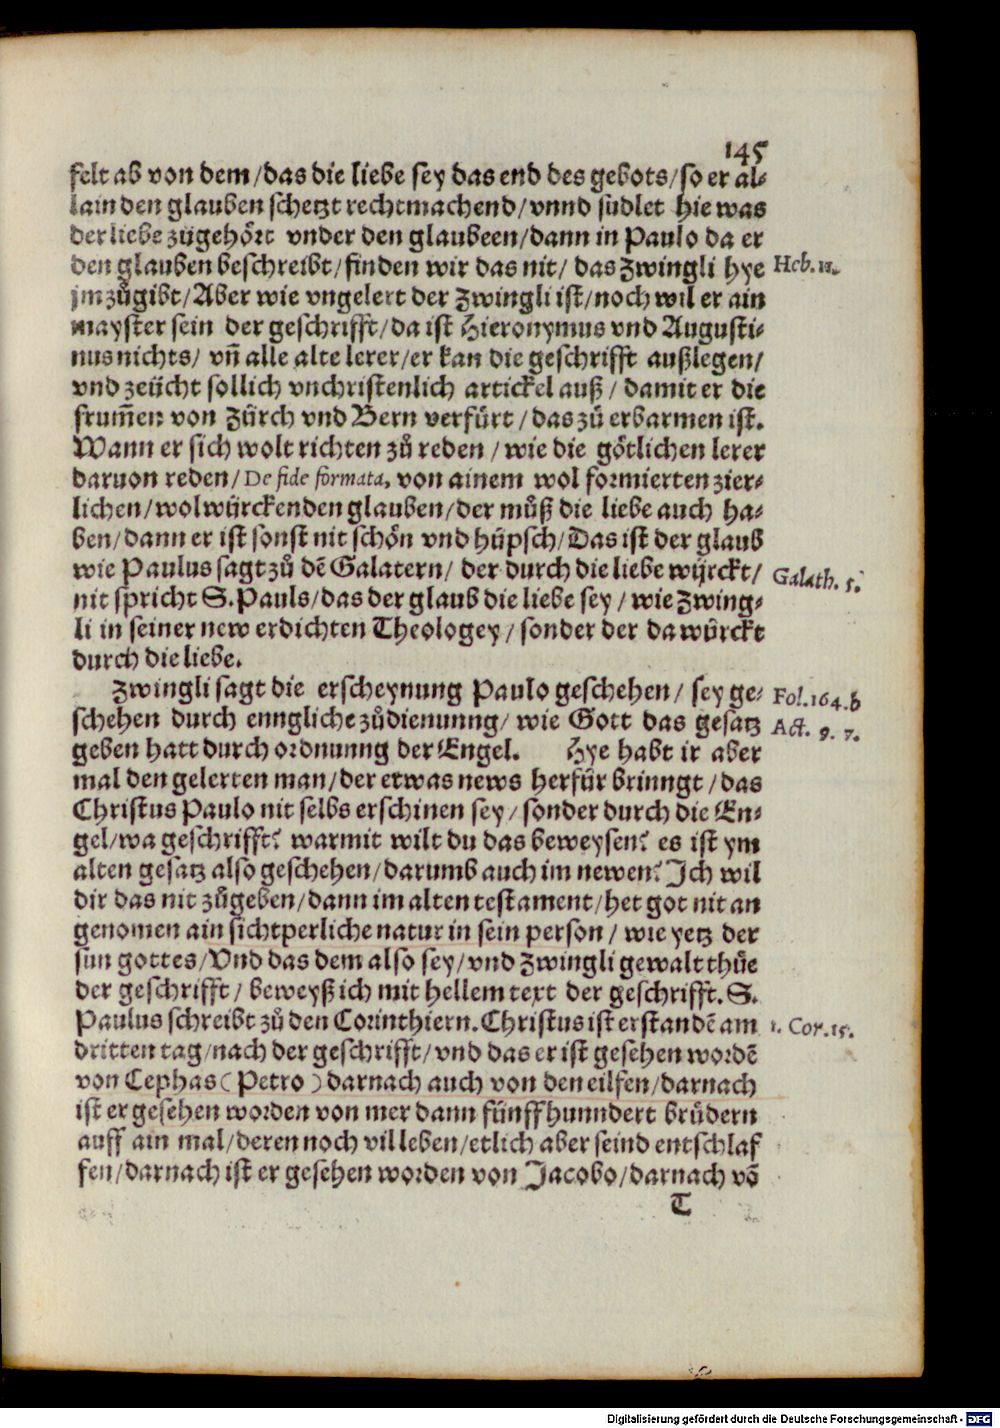 145
felt ab von dem/das die liebe sey das end des gebots/so er al-
lain den glauben schetzt rechtmachend/vnnd südlet hie was
der liebe zügehört vnder den glaubeen/dann in Paulo da er
den glauben beschreibt/finden wir das nit/ das Zwingli hye Heb. 11.
jm zůgibt/Aber wie vngelert der Zwingli ist/noch wil er ain
mayster sein der geschrifft/da ist Hieronymus vnd Augusti-
nus nichts/ vñ alle alte lerer/er kan die geschrifft außlegen/
vnd zeücht sollich vnchristenlich artickel auß/ damit er die
frum̃en von Zürch vnd Bern verfürt/das zů erbarmen ist.
Wann er sich wolt richten zů reden/wie die götlichen lerer
daruon reden/De fide formata, von ainem wol formierten zier-
lichen/wolwürckenden glauben/der můß die liebe auch ha-
ben/dann er ist sonst nit schön vnd hüpsch/Das ist der glaub
wie Paulus sagt zů dẽ Galatern/ der durch die liebe wÿrckt/ Galath. 5.
nit spricht S. Pauls/das der glaub die liebe sey/wie Zwing-
li in seiner new erdichten Theologey/sonder der da würckt
durch die liebe.
Zwingli sagt die erscheynung Paulo geschehen/ sey ge- Fol.164.b
schehen durch enngliche zůdienunng/ wie Gott das gesatz Act. 9. 7.
geben hatt durch ordnunng der Engel. Hye habt ir aber
mal den gelerten man/der etwas news herfür brinngt/das
Christus Paulo nit selbs erschinen sey/sonder durch die En-
gel/wa geschrifft? warmit wilt du das beweysen? es ist ym
alten gesatz also geschehen/darumb auch im newen? Ich wil
dir das nit zůgeben/dann im alten testament/het got nit an
genomen ain sichtperliche natur in sein person/ wie yetz der
sun gottes/Vnd das dem also sey/vnd Zwingli gewalt thüe
der geschrifft/ beweyß ich mit hellem text der geschrifft. S.
Paulus schreibt zů den Corinthiern. Christus ist erstandẽ am 1. Cor. 15.
dritten tag/nach der geschrifft/vnd das er ist gesehen wordẽ
von Cephas (Petro) darnach auch von den eilfen/darnach
ist er gesehen worden von mer dann fünffhunndert brüdern
auff ain mal/deren noch vil leben/etlich aber seind entschlaf
fen/darnach ist er gesehen worden von Jacobo/darnach võ
T
Digitalisierung gefördert durch die Deutsche Forschungsgemeinschaft - DFG